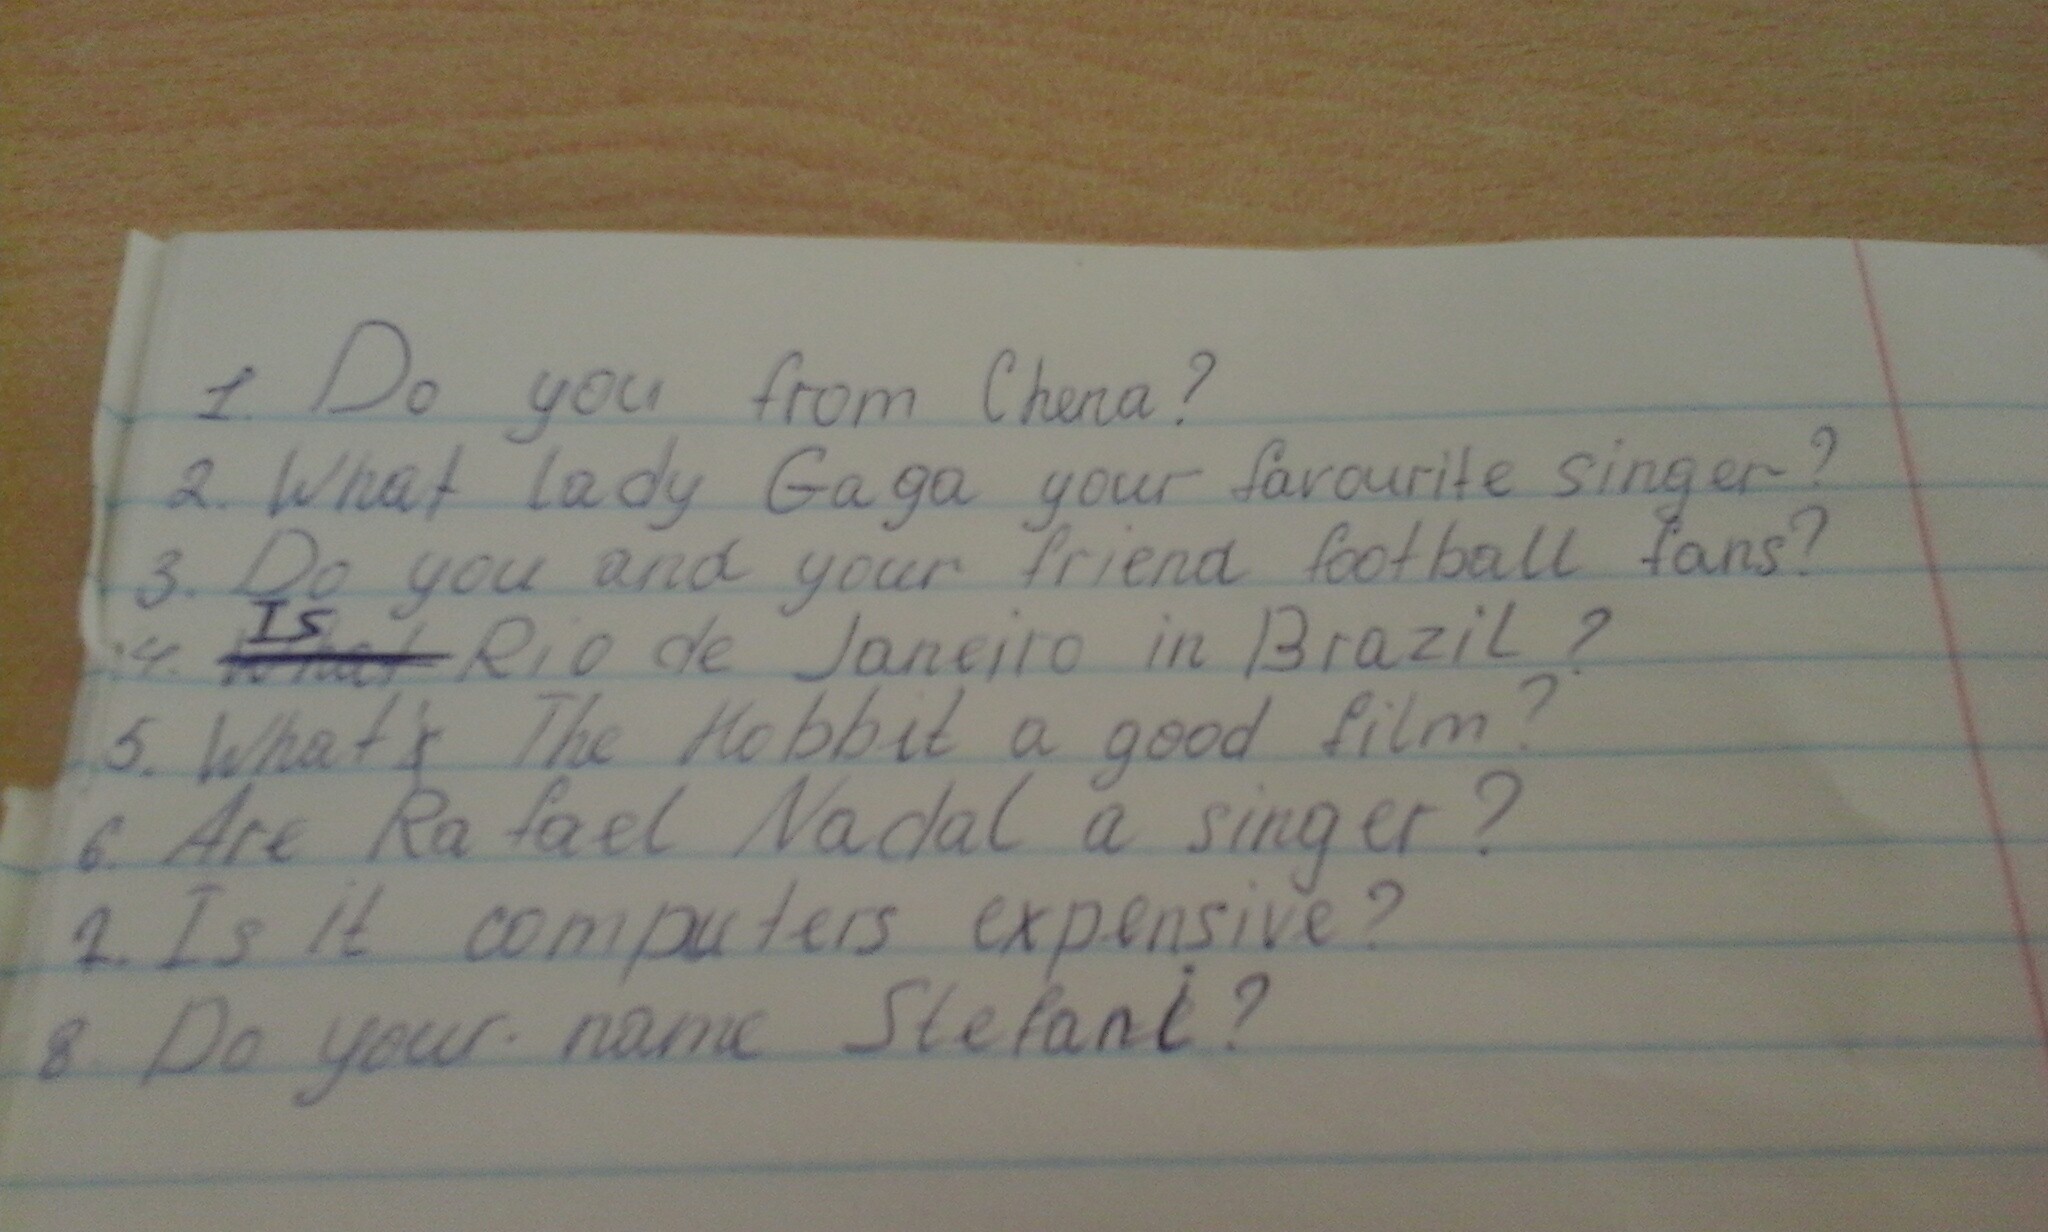 1. Do you from Chena?
2. What lady Gaga your favourite singer?
3. Do you and your friend football fans?
4. Is What Rio de Janeiro in Brazil?
5. What's The Hobbit a good film?
6. Are Rafael Nadal a singer?
7. Is it computers expensive?
8. Do your name Stefani?